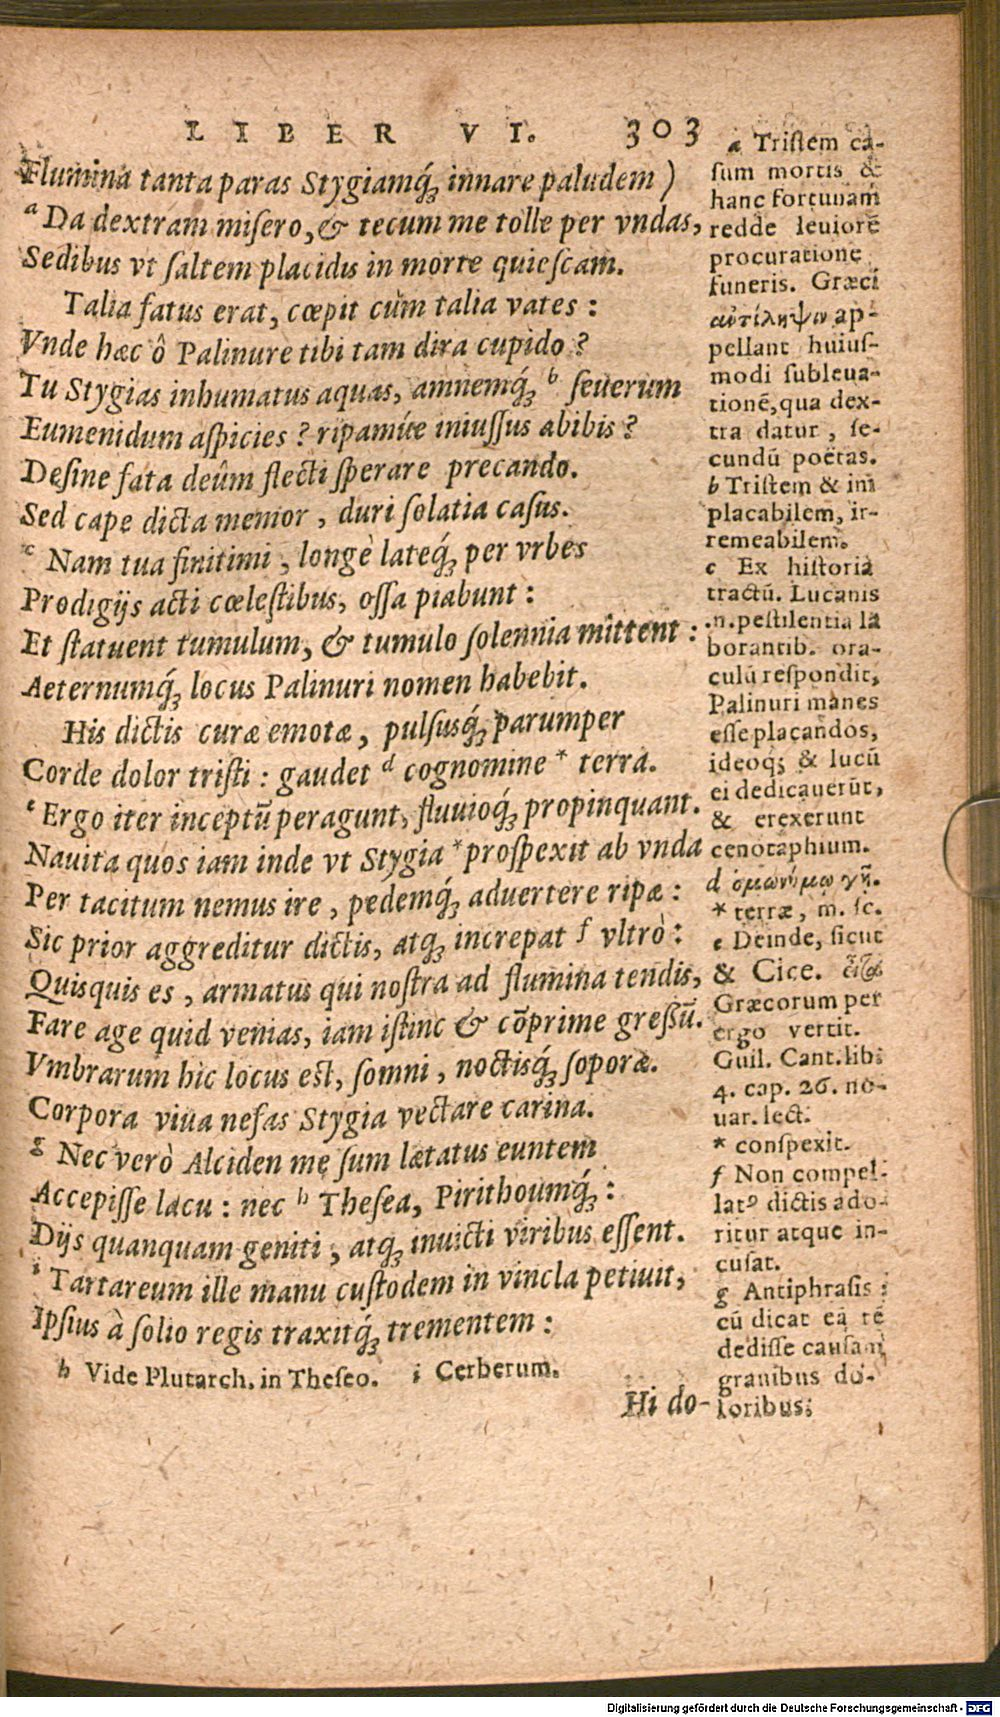 LIBER VI. 303
Flumina tanta paras Stygiamq́; innare paludem )
a Da dextram misero, & tecum me tolle per vndas,
Sedibus vt saltem placidis in morte quiescam.
Talia fatus erat, cœpit cùm talia vates :
Vnde hæc ô Palinure tibi tam dira cupido ?
Tu Stygias inhumatus aquas, amnemq́; b seuerum
Eumenidum aspicies ? ripamúe iniussus abibis ?
Desine fata deûm flecti sperare precando.
Sed cape dicta memor , duri solatia casus.
c Nam tua finitimi , longè lateq́; per vrbes
Prodigijs acti cœlestibus, ossa piabunt :
Et statuent tumulum, & tumulo solennia mittent :
Aeternumq́; locus Palinuri nomen habebit.
His dictis curæ emotæ , pulsusq́; parumper
Corde dolor tristi : gaudet d cognomine * terra.
e Ergo iter inceptū peragunt, fluuioq́; propinquant.
Nauita quos iam inde vt Stygia * prospexit ab vnda
Per tacitum nemus ire , pedemq́; aduertere ripæ :
Sic prior aggreditur dictis, atq; increpat f vltrò :
Quisquis es , armatus qui nostra ad flumina tendis,
Fare age quid venias, iam istinc & cōprime gressū.
Vmbrarum hic locus est, somni , noctisq́; soporæ.
Corpora viua nefas Stygia vectare carina.
g Nec verò Alciden me sum lætatus euntem
Accepisse lacu : nec h Thesea, Pirithoumq́; :
Dijs quanquam geniti , atq; inuicti viribus essent.
i Tartareum ille manu custodem in vincla petiuit,
Ipsius à solio regis traxitq́; trementem :
h Vide Plutarch. in Theseo. i Cerberum.
Hi do-
a Tristem ca-
sum mortis &
hanc fortunam
redde leuiorē
procuratione
funeris. Græci
ἀντίληψιν ap-
pellant huius-
modi subleua-
tionē, qua dex-
tra datur , se-
cundū poëtas.
b Tristem & im
placabilem, ir-
remeabilem.
c Ex historia
tractū. Lucanis
.n. pestilentia la
borantib. ora-
culū respondit,
Palinuri manes
esse placandos,
ideoq; & lucū
ei dedicauerūt,
& erexerunt
cenotaphium.
d ὁμωνύμῳ γῇ.
* terræ, m. sc.
e Deinde, sicut
& Cice. εἶτα
Græcorum per
ergo vertit.
Guil. Cant. lib.
4. cap. 26. no-
uar. lect.
* conspexit.
f Non compel-
latꝰ dictis ado-
ritur atque in-
cusat.
g Antiphrasis :
cū dicat eā rē
dedisse causam
grauibus do-
loribus.
Digitalisierung gefördert durch die Deutsche Forschungsgemeinschaft - DFG